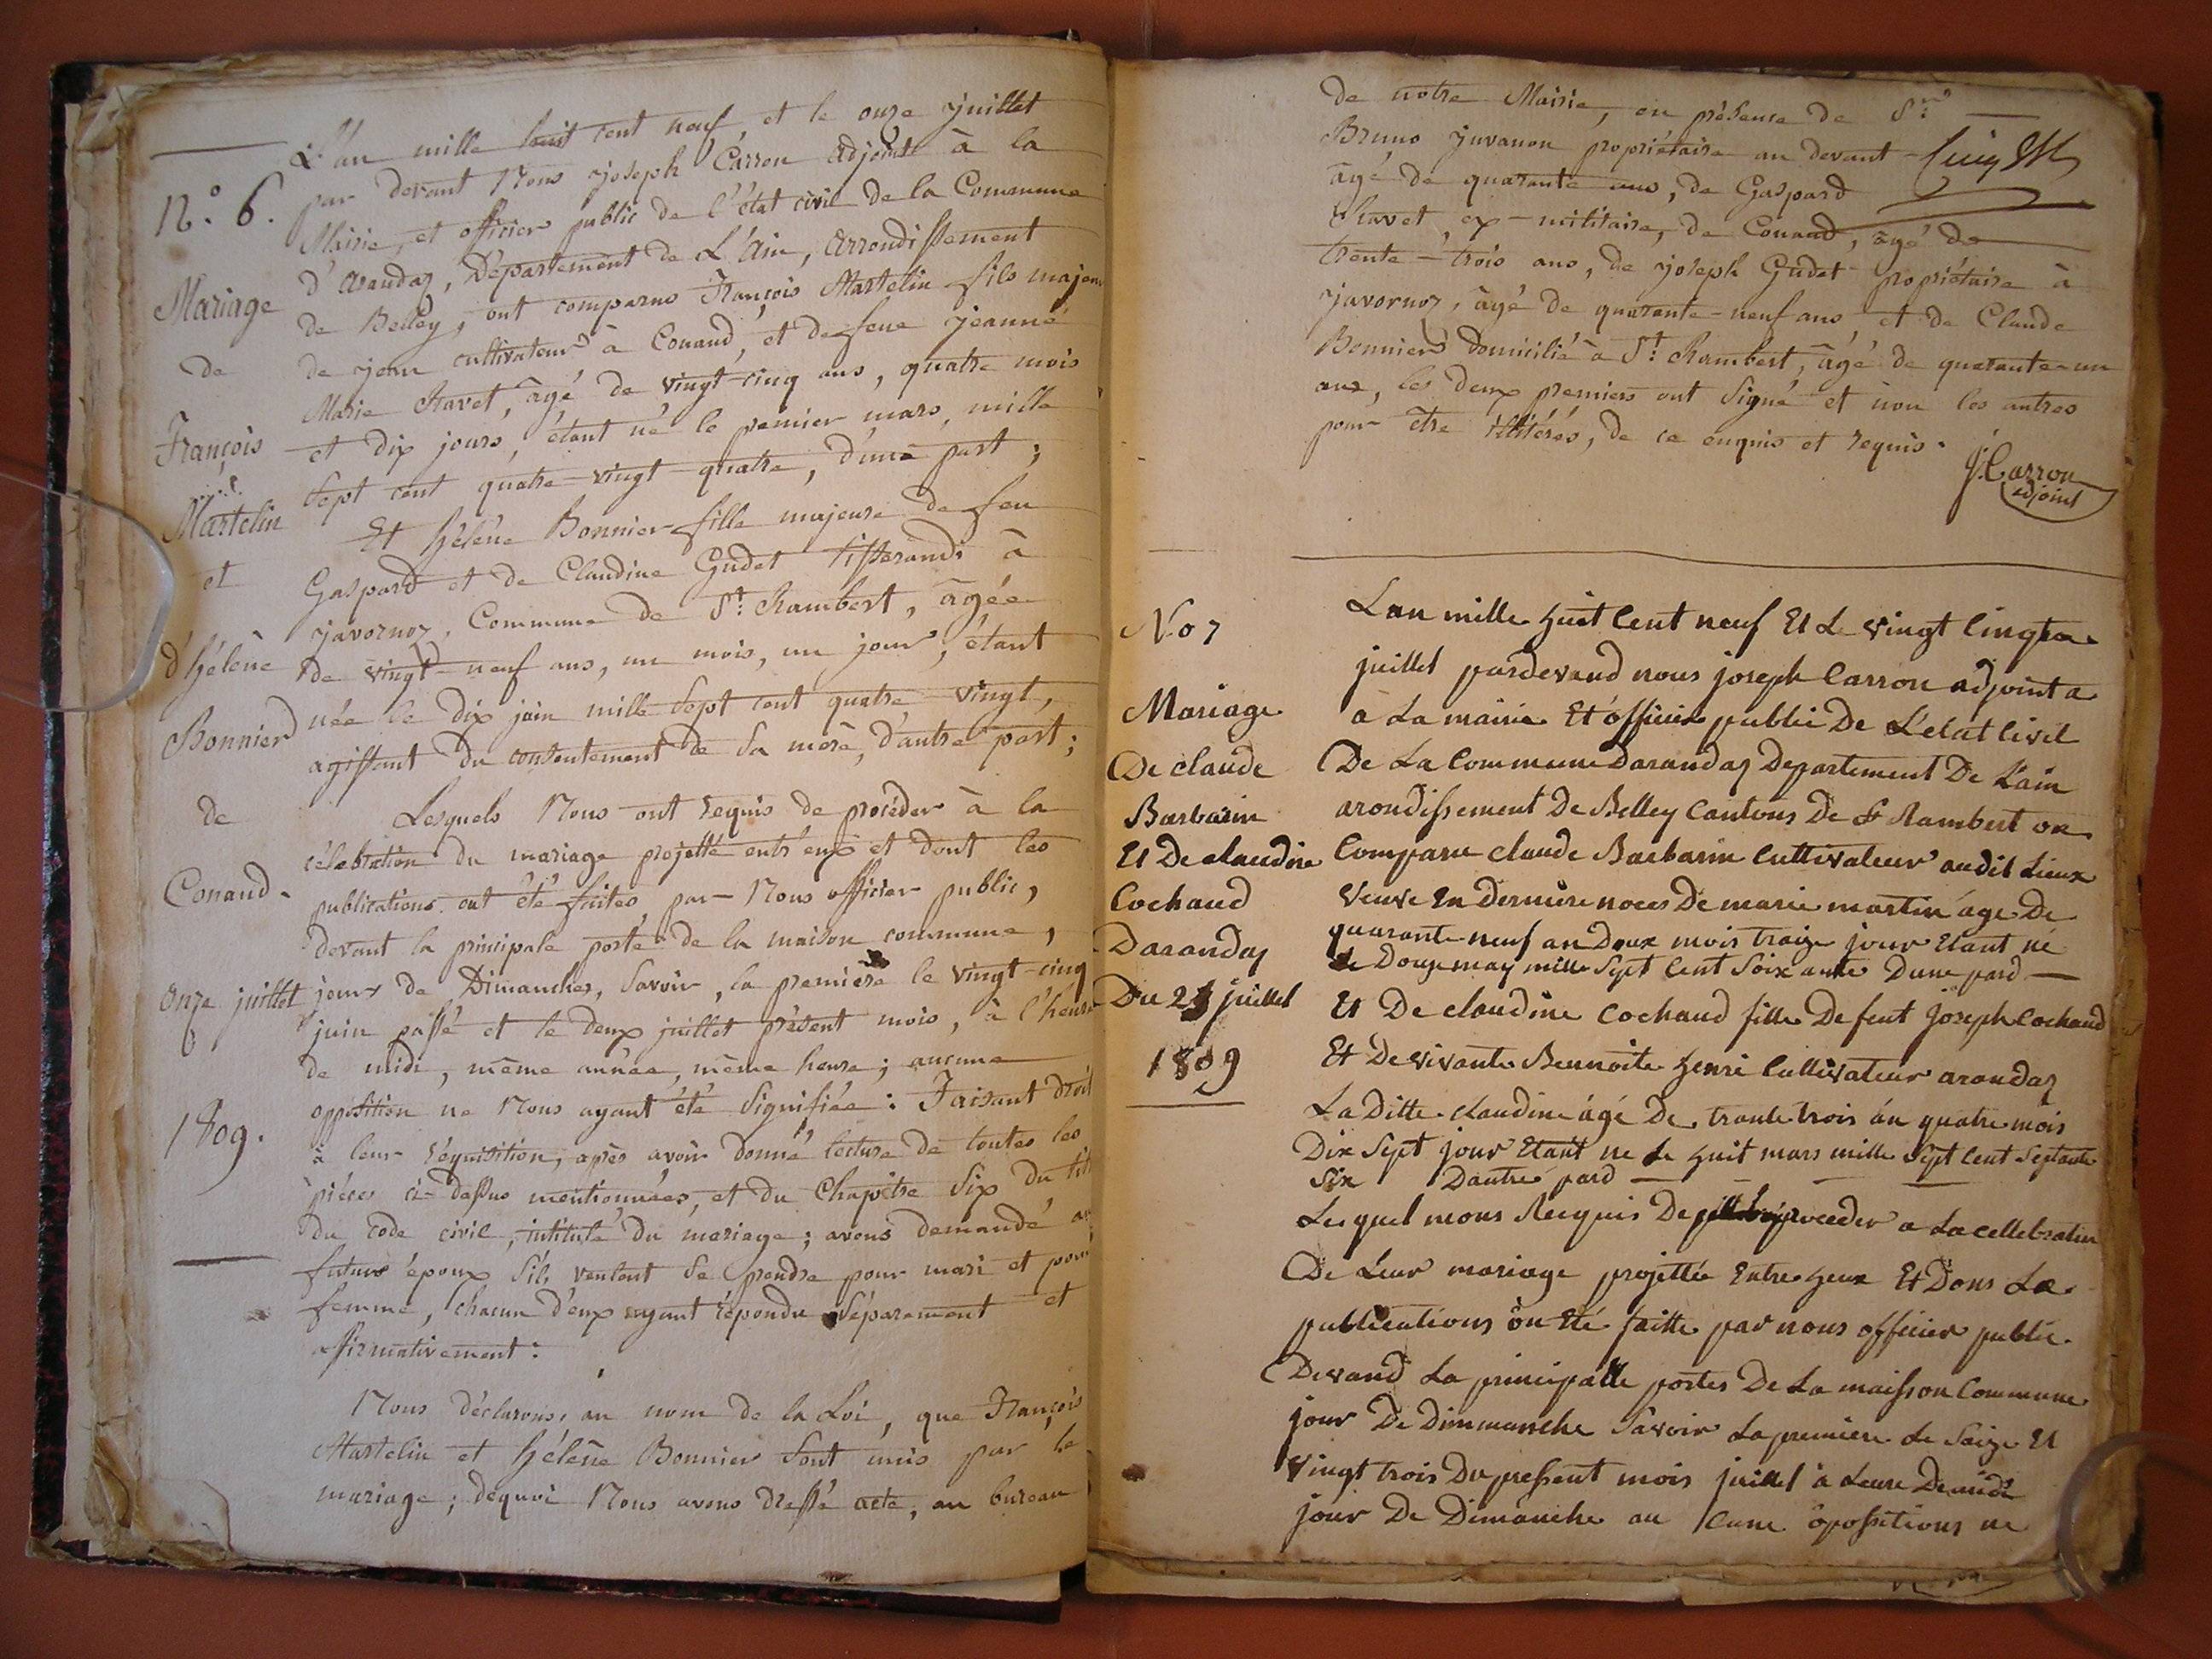 L'an mille huit cent neuf, et le onze juillet
N.o 6. par devant Nous joseph Carron adjoint à la
Mairie, et officier public de l'état civil de la Commune
d'arandaz, Département de L'Ain, arrondissement
Mariage de Belley, ont comparus François Martelin fils majeur
de de jean cultivateur à Conand, et de feue jeanne
Marie Ravet, âgé de vingt-cinq ans, quatre mois
François et dix jours, étant né le premier mars, mille
Martelin Sept cent quatre-vingt-quatre, d'une part;
Et hélène Bonnier fille majeure de feu
et Gaspard et de Claudine Gudet tisserands à
javornoz, Commune de St: Rambert, âgée
d'hélène de vingt-neuf ans, un mois, un jour, étant
Bonnier née le dix juin mille Sept cent quatre vingt,
agissant du consentement de Sa mère, d'autre part;
de Lesquels Nous ont requis de procéder à la
célébration du mariage projetté entr'eux et dont les
Conand. publications ont été faites par Nous officier public,
devant la principale porte de la maison commune,
onze juillet jours de Dimanches, Savoir, la première le vingt-cinq
juin passé et le deux juillet présent mois, à l'heure
de midi, même année, même heure; aucune
opposition ne Nous ayant été Signifiée: Faisant droit
1809. à leur réquisition, après avoir donné lecture de toutes les
pièces ci-dessus mentionnées, et du Chapitre Six du
du code civil, intitulé du mariage; avons demandé
futurs époux S'ils veulent Se prendre pour mari et pour
femme, chacun d'eux ayant répondu Séparement et
affirmativement:
Nous déclarons, au nom de la Loi, que François
Martelin et hélène Bonnier Sont unis par le
mariage; dequoi Nous avons dressé acte, au bureau
de notre Mairie, en présence de Srs:
Bruno juvanon propriétaire au devant
âgé de quarante ans, de Gaspard
Ravet, ex-militaire, de Conand, âgé de
trente-trois ans, de joseph Gudet propriétaire à
javornoz, âgé de quarante-neuf ans, et de Claude
Bonnier domicilié à St: Rambert, âgé de quarante-un
ans, les deux premiers ont Signé et non les autres
pour être illitérés, de ce enquis et requis.
J. Carron
adjoint
Lan mille huit Cent neuf Et Le vingt Cinq
No 7 juillet pardevand nous joseph Carron adjoint a
Mariage a La mairie Et officier public De L'etat Civil
De claude De La Commune Darandaz Departement De L'ain
Barbarin arondissement De Belley Cantons De St Rambert on
Et De claudine Comparu claude Barbarin Cultivateur audit Lieux
Cochaud veuve En Derniere noces De marie martin âge De
Darandaz quarante neuf an Deux mois traize jour Etant né
Le Douze may mille Sept Cent Soixante Dune pard
Du 25 juillet Et De claudine Cochaud fille De feut joseph Cochaud
1809 Et De vivante Bennoite henri Cultivateur arandaz
La Ditte claudine âgé De trante trois ân quatre mois
Dix Sept jour Etant ne Le huit mars mille Sept Cent Septante
Six Dautre pard
Lesquel nous Recquis De proceder a La cellebration
De Leur mariage projettée Entre heux Et Dons La
publications ôn Eté faitte par nous officier public
Devand La principalle portes De La maisson Commune
jour De Dimmanche Savoir La premiere Le Saize Et
vingt trois Du pressent mois juillet à Leure De midi
jour De Dimanche au Cune ôpositions ne